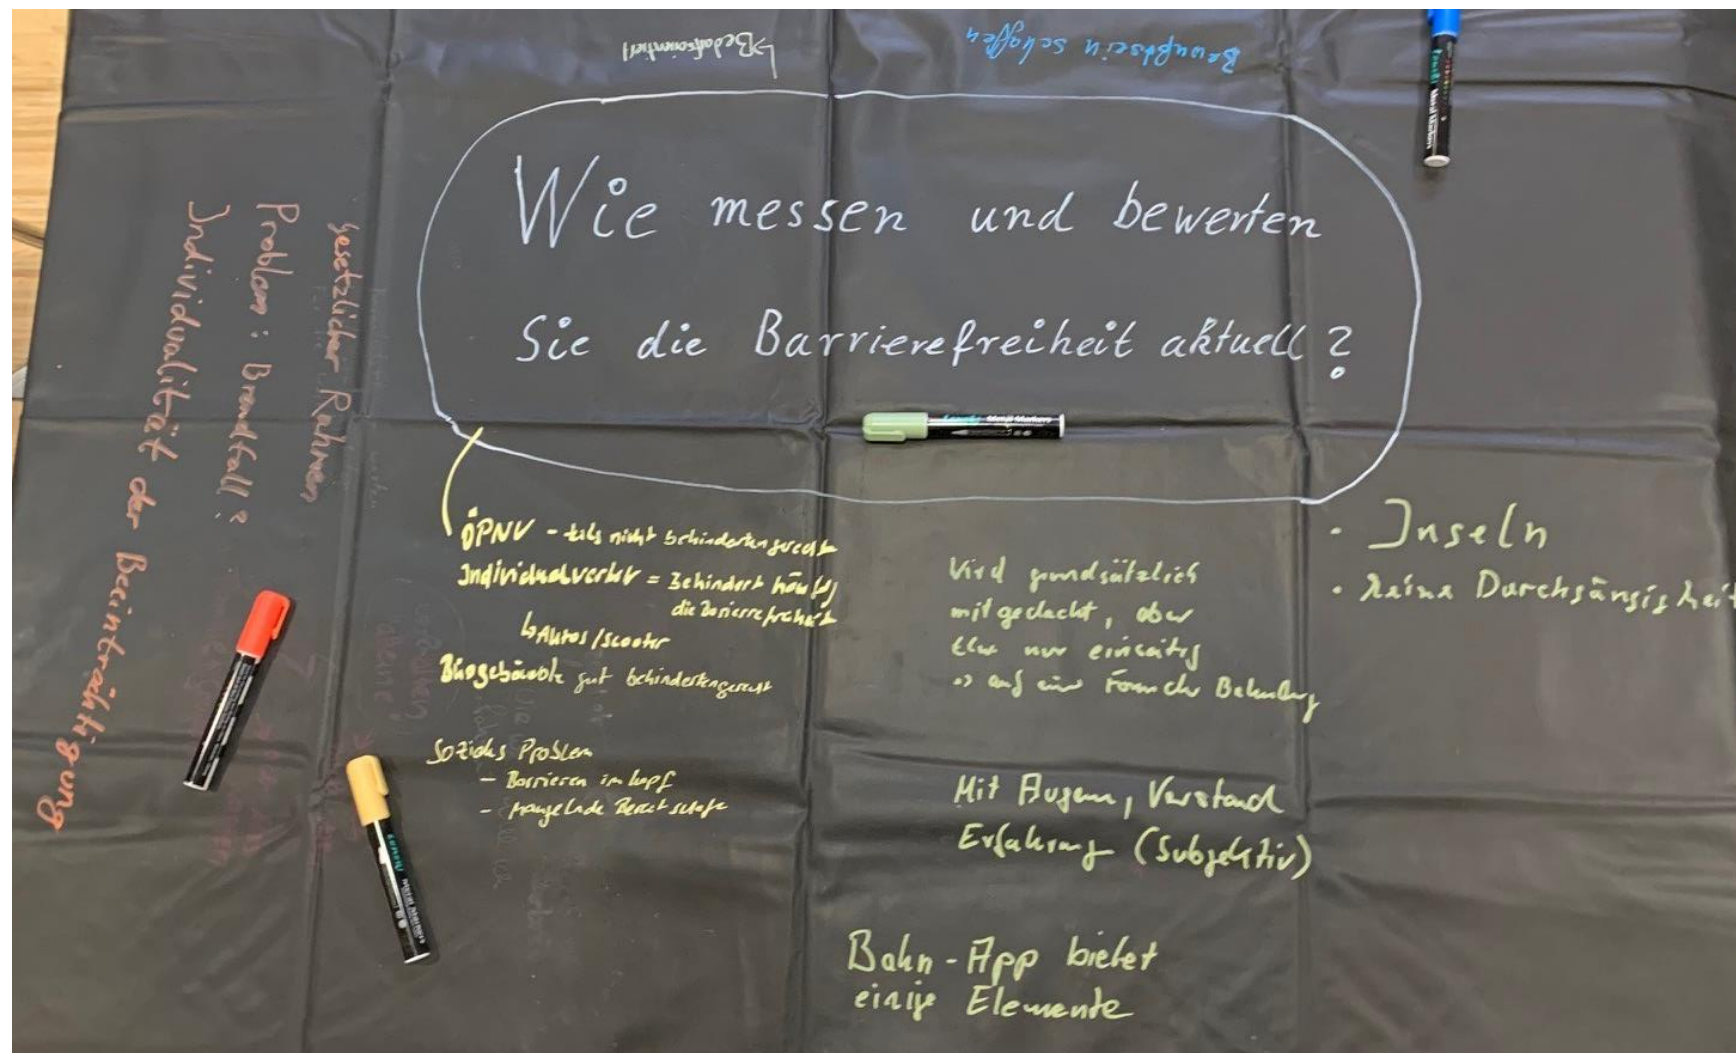 ↳Bedarfsorientiert
Bewußtsein schaffen
Wie messen und bewerten
Sie die Barrierefreiheit aktuell?
gesetzlicher Rahmen
Problem: Brandfall?
Individualität der Beeinträchtigung
ÖPNV - teils nicht behindertengerecht
Individualverkehr = Behindert häufig
die Barrierefreiheit
↳Autos/Scooter
Bürogebäude gut behindertengerecht
Soziales Problem
- Barrieren im Kopf
- mangelnde Bereitschaft
Wird grundsätzlich
mitgedacht, aber
eher nur einseitig
=> auf eine Form der Behinderung
Mit Augen, Verstand
Erfahrung (Subjektiv)
Bahn-App bietet
einige Elemente
· Inseln
· keine Durchgängigkeit